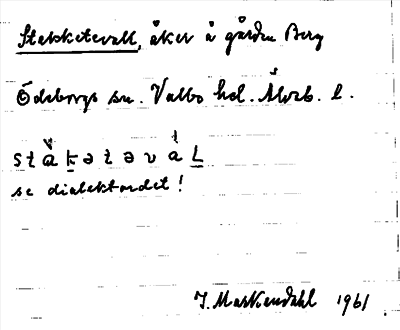 Stakketevall, åker å gården Berg
Ödeborgs sn. Valbo hd. Älvsb. l.
se dialektordet!
J. Markendahl 1961